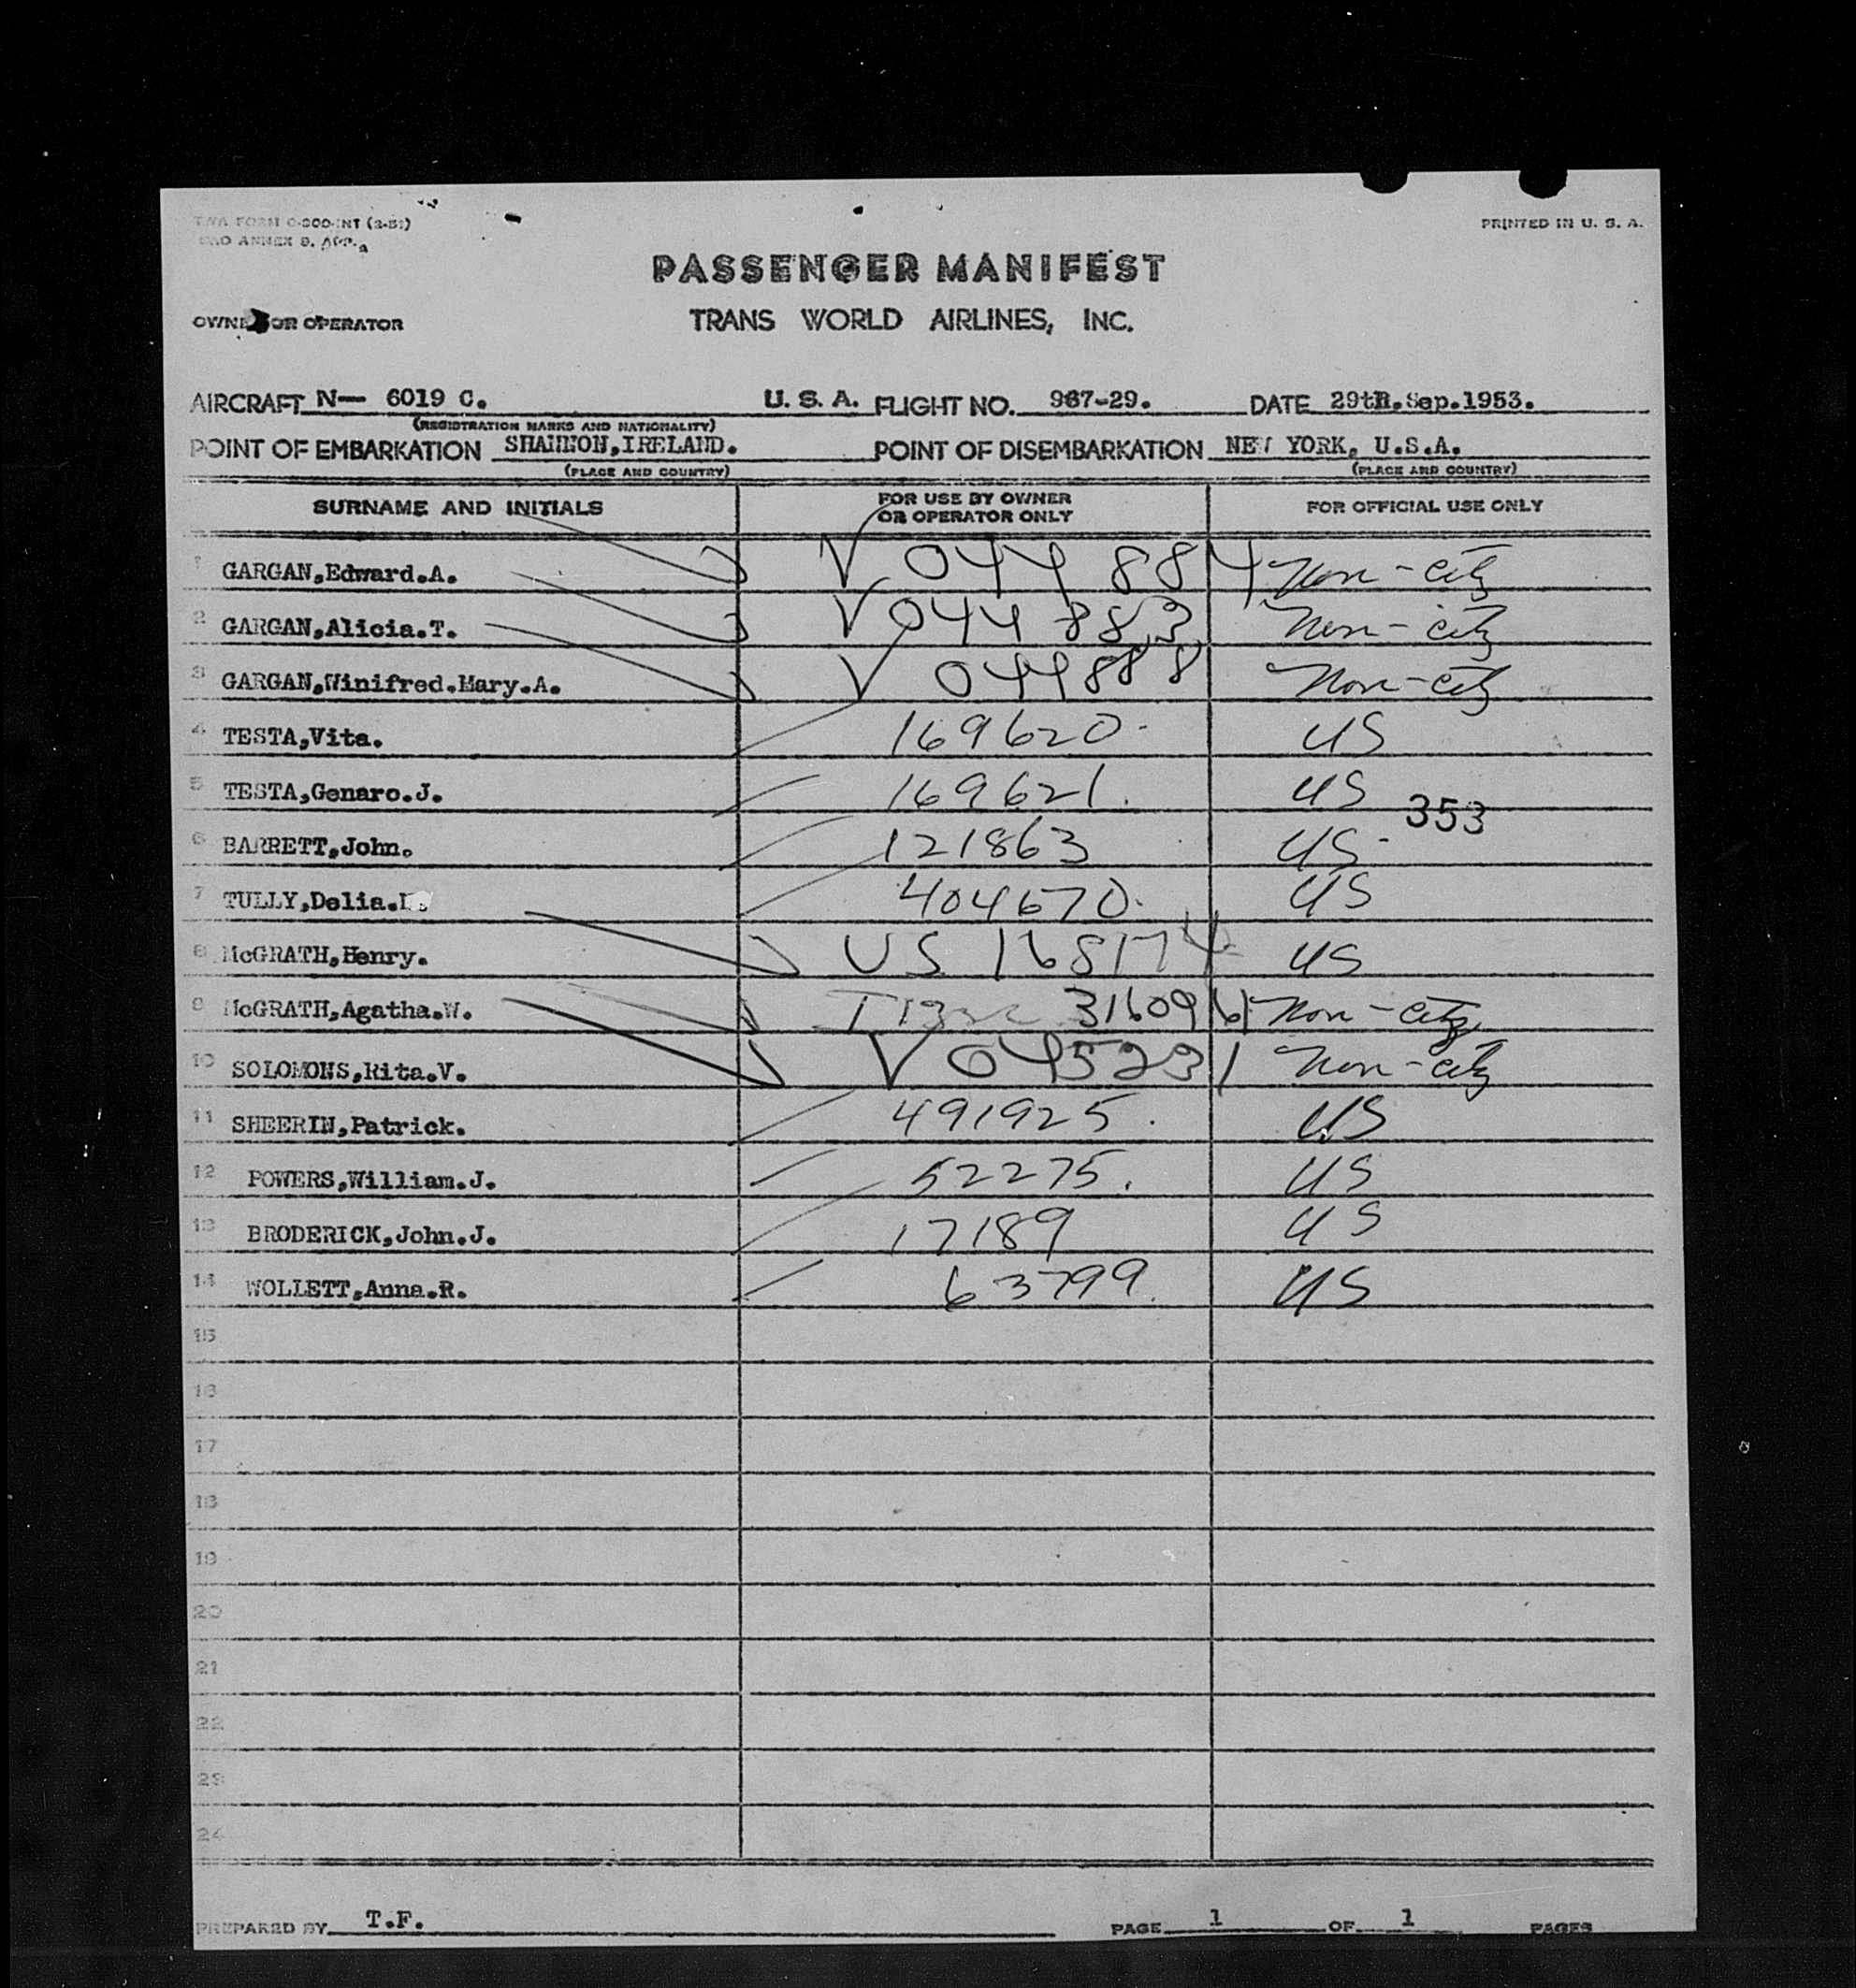 TWA FORM O-300-INT (2-51)
ICAO ANNEX 9. APP.
PRINTED IN U. S. A.
PASSENGER MANIFEST
OWNER OR OPERATOR TRANS WORLD AIRLINES, INC.
AIRCRAFT N— 6019 C. U. S. A. FLIGHT NO. 967-29. DATE 29th.Sep.1953.
(REGISTRATION MARKS AND NATIONALITY)
POINT OF EMBARKATION SHANNON,IRELAND. POINT OF DISEMBARKATION NEW YORK, U.S.A.
(PLACE AND COUNTRY) (PLACE AND COUNTRY)
SURNAME AND INITIALS FOR USE BY OWNER OR OPERATOR ONLY FOR OFFICIAL USE ONLY
1 GARGAN,Edward.A. V 044 884 Non-citz
2 GARGAN,Alicia.T. V 044 883 Non-citz
3 GARGAN,Winifred.Mary.A. V 044888 Non-citz
4 TESTA,Vita. 169620. US
5 TESTA,Genaro.J. 169621. US
353
6 BARRETT,John. 121863 US-
7 TULLY,Delia. 404670. US
8 McGRATH,Henry. US 168174 US
9 McGRATH,Agatha.W. 316096 Non-citz
10 SOLOMONS,Rita.V. V 045231 Non-citz
11 SHEERIN,Patrick. 491925. US
12 POWERS,William.J. 52275. US
13 BRODERICK,John.J. 17189 US
14 WOLLETT,Anna.R. 63799. US
15
16
17
18
19
20
21
22
23
24
PREPARED BY T.F. PAGE 1 OF 1 PAGES